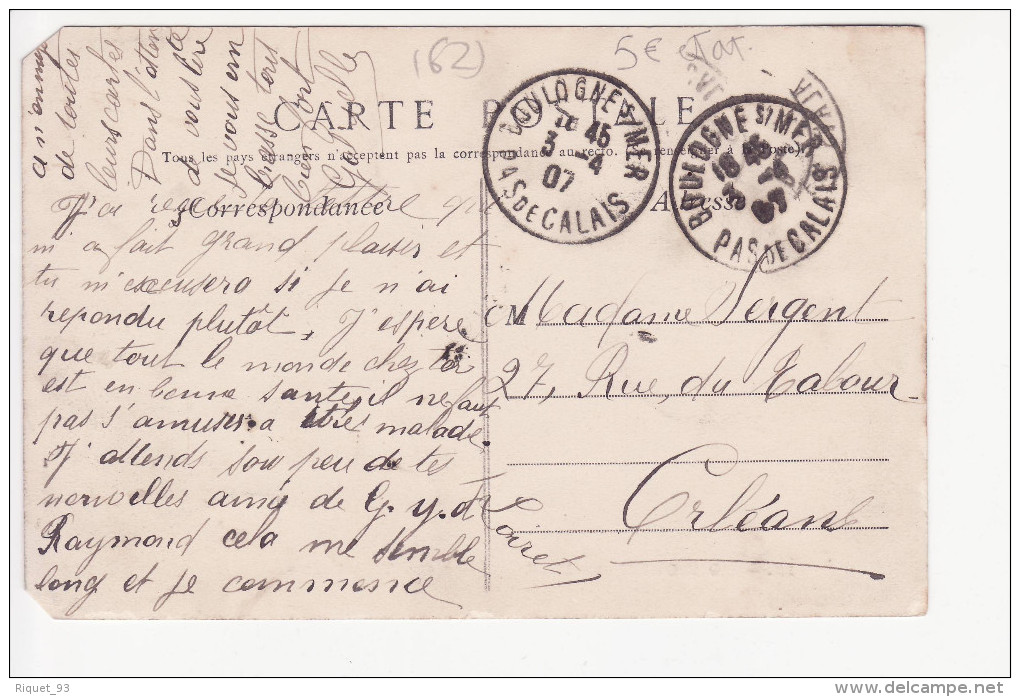 (62)
5€
CARTE POSTALE
Tous les pays étrangers n'acceptent pas la correspondance au recto. (Se renseigner à la Poste).
Correspondance
Adresse
BOULOGNE S/ MER
18 45
3 -4
07
PAS DE CALAIS
BOULOGNE S/ MER
18 45
3 -4
07
PAS DE CALAIS
J'ai reçu ta lettre qui
m'a fait grand plaisir et
tu m'excusera si je n'ai
repondu plutôt, J'espère
que tout le monde chez toi
est en bonne santé il ne faut
pas s'amuser a être malade,
J'attends sou peu de tes
nouvelles ainsi de G. y. d
Raymond cela me semble
long et je commence
a m'ennuy
de toutes
leurs cartes
Dans l'atten
de vous lire
je vous em
brasse tous
bien fort
Madame Sergent
27, Rue du Tabour
Orléans
Loiret
Riquet_93
www.delcampe.net